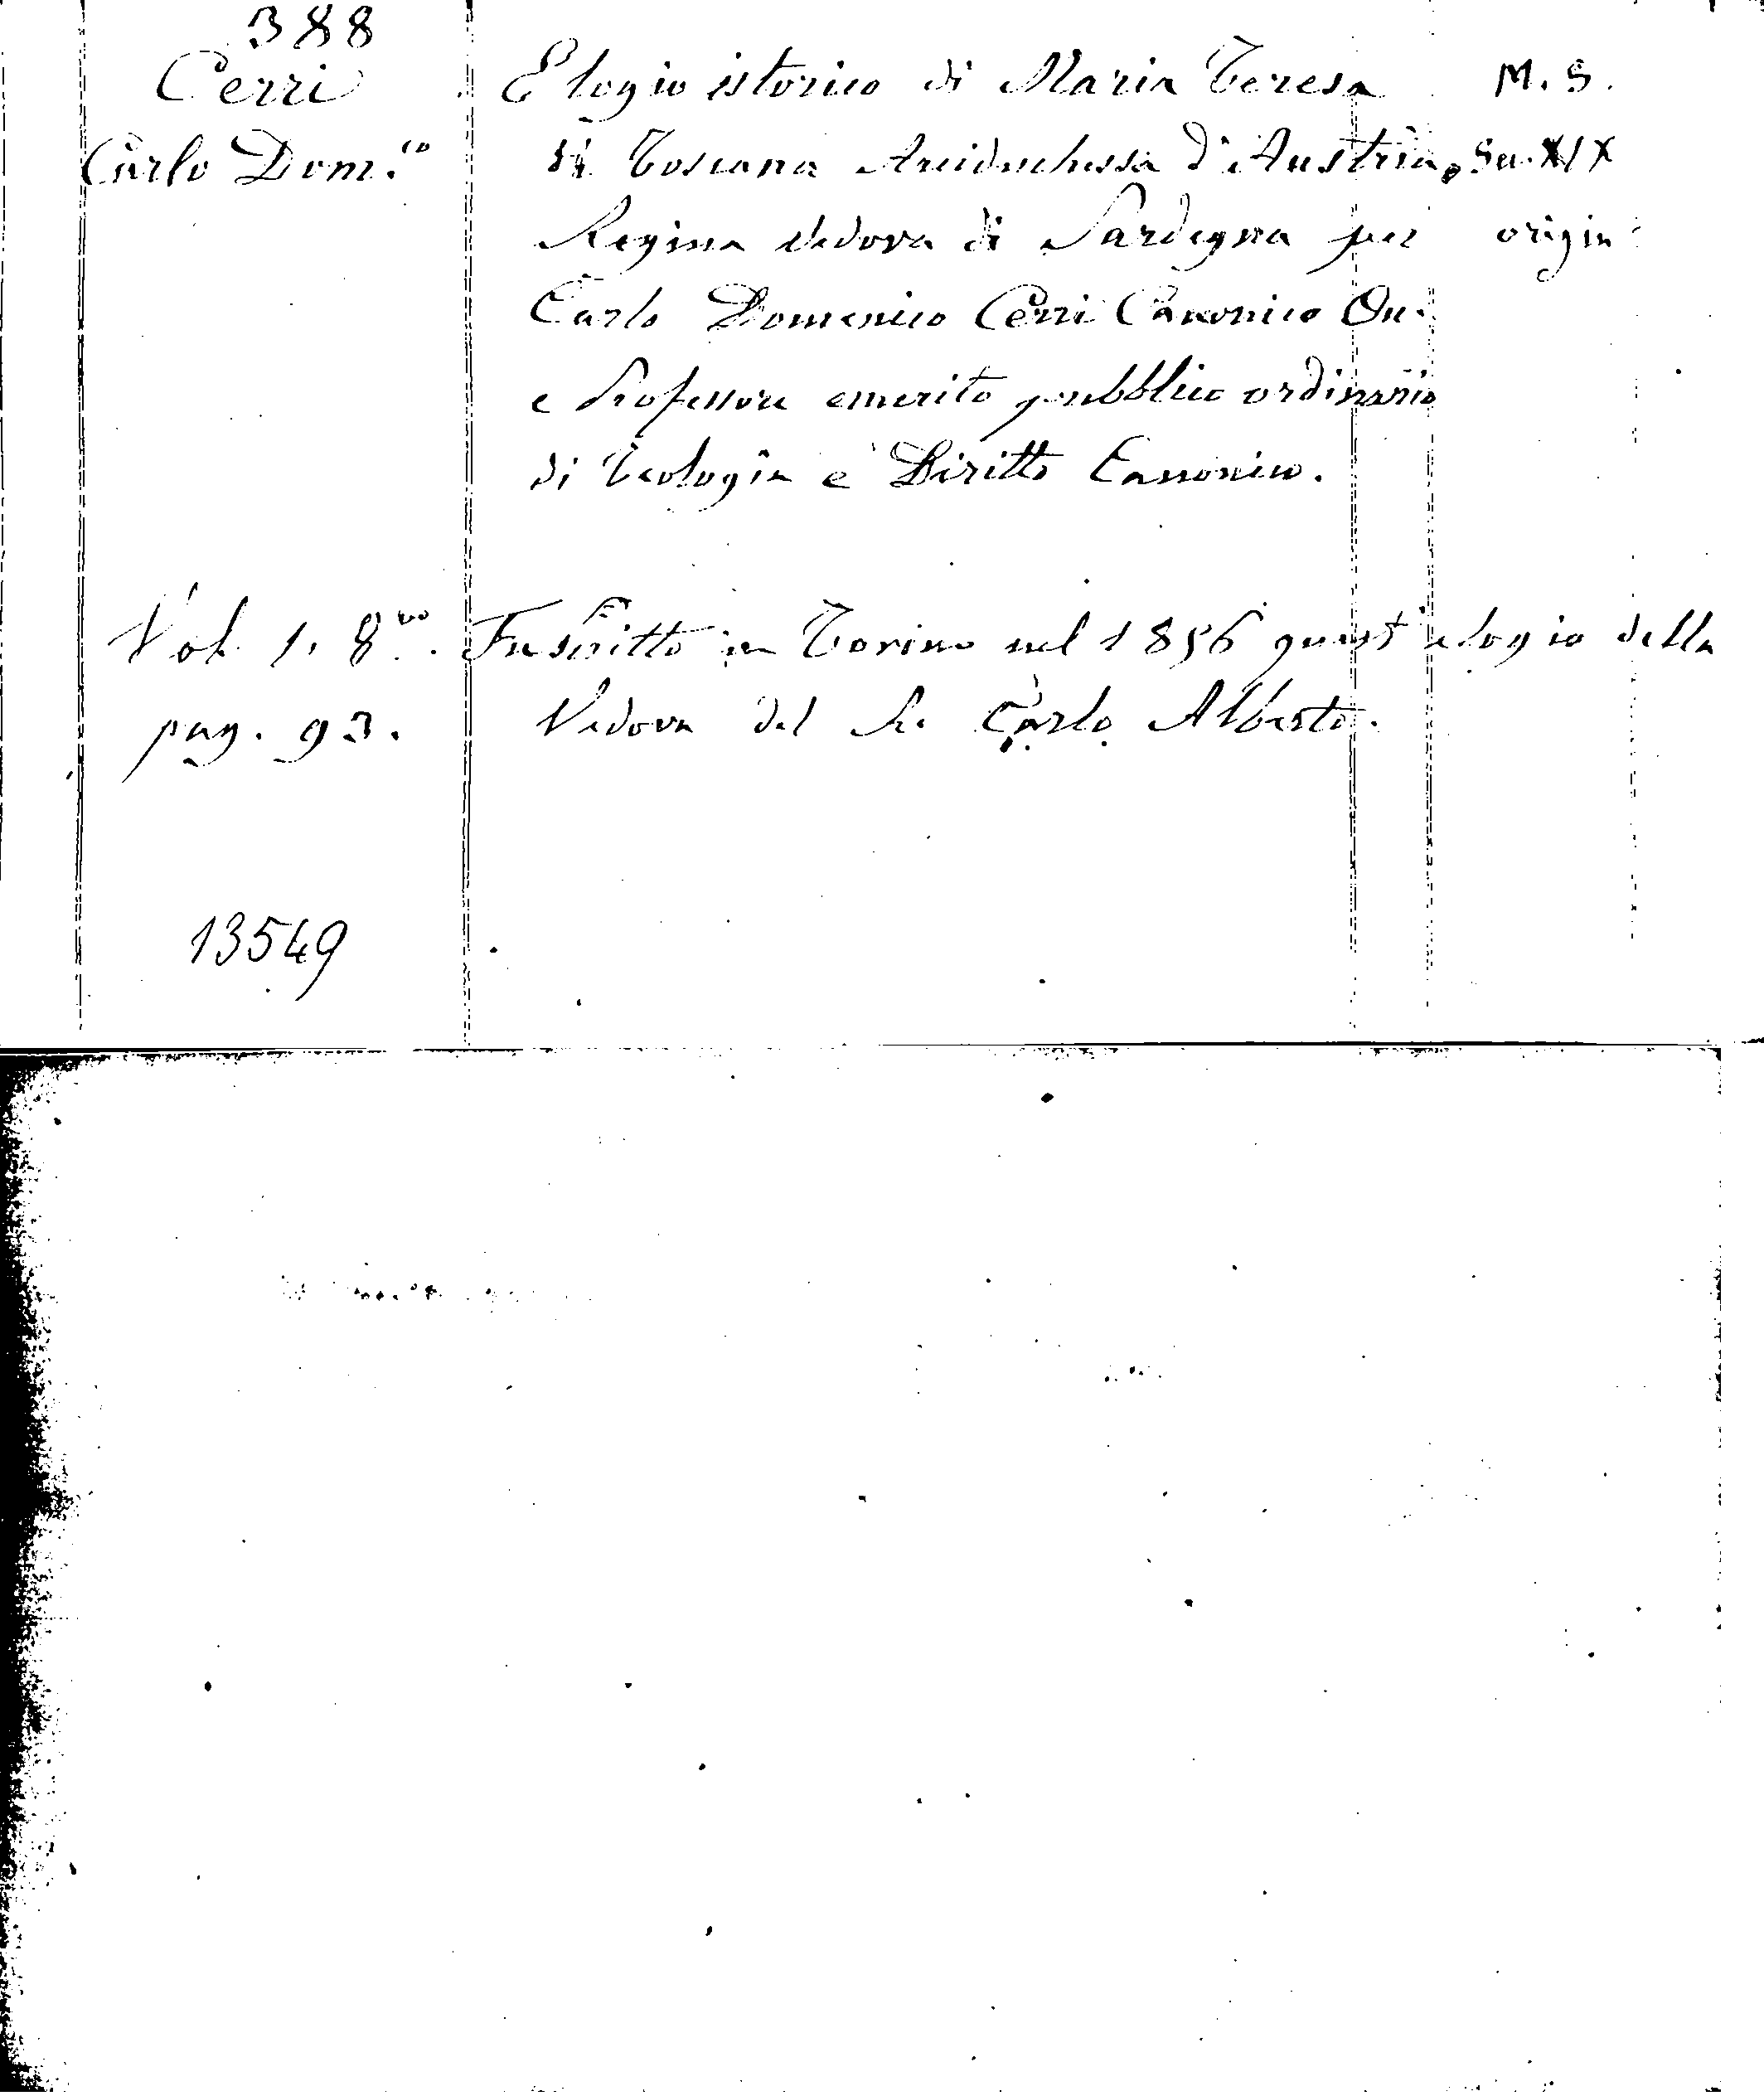 388
Cerri
Carlo Dom.co
Elogio istorico di Maria Teresa
di Toscana Arciduchessa d'Austria,
Regina Vedova di Sardegna per
Carlo Domenico Cerri Canonico On.
e Professore emerito pubblico ordinario
di Teologia e Diritto Canonico.
M. S.
Sec. XIX
origin
Vol. 1. 8vo
pag. 93.
Fu scritto in Torino nel 1856 quest'elogio della
Vedova del Re Carlo Alberto.
13549